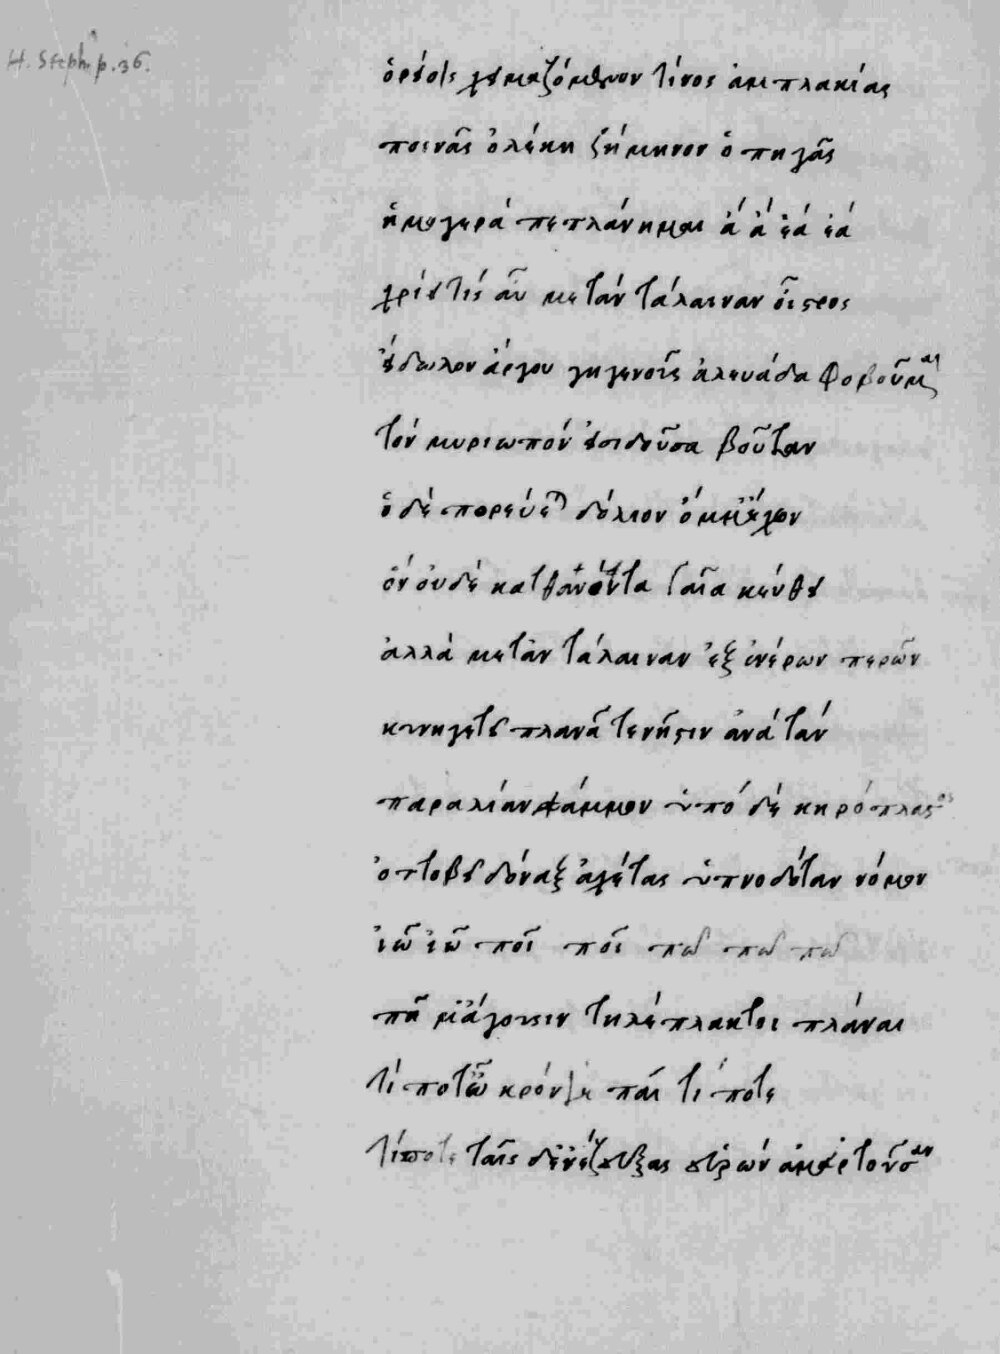 H. Steph. p. 36.
ὀρείοις χειμαζόμενον τίνος ἀμπλακίας
ποινᾶς ὀλέκῃ σήμηνον ὁ πη γᾶς
ἡ μογερὰ πεπλάνημαι ἆ ἆ ἐὰ ἐὰ
χρίει τίς αὖ με τὰν τάλαιναν οἶστρος
εἴδωλον ἄργου γηγενοῦς ἀλευάδα φοβοῦμαι
τὸν μυριωπὸν εἰσιδοῦσα βοῦταν
ὁ δὲ πορεύεται δόλιον ὄμμ' ἔχων
ὃν οὐδὲ κατθανόντα γαῖα κεύθει
ἀλλὰ με τὰν τάλαιναν ἐξ ἐνέρων περῶν
κυνηγετεῖ πλανᾶ τε νῆστιν ἀνὰ τὰν
παραλίαν ψάμμον ὑπὸ δὲ κηρόπλαστος
ὀττοβεῖ δόναξ ἀχέτας ὑπνοδόταν νόμον
ἰὼ ἰὼ ποῖ ποῖ πω πω πω
πῆ μ' ἄγουσιν τηλέπλακτοι πλάναι
τί ποτ' ὦ κρόνιε παῖ τί ποτε
τίποτε ταῖς δ' ἐνέζευξας εὑρὼν ἁμαρτοῦσαν